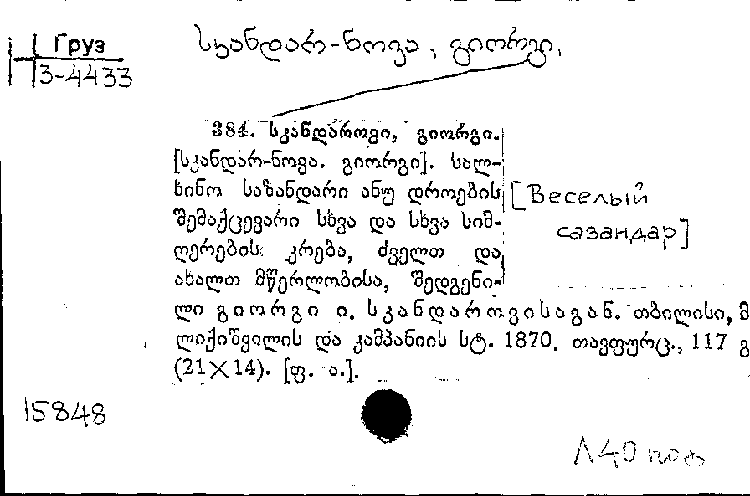 Груз
3-4433
სკანდარ-ნოვა, გიორგი.
384. სკანდაროვი, გიორგი.
[სკანდარ-ნოვა. გიორგი]. სალ-
ხინო საზანდარი ანუ დროების
შემაქცევარი სხვა და სხვა სიმ-
ღერების კრება, ძველთ და
ახალთ მწერლობისა, შედგენი-
ლი გიორგი ი. სკანდაროვისაგან. თბილისი, მ
ლიქიშვილის და კამპანიის სტ. 1870. თავფურც., 117 გ
(21×14). [ფ. ა.].
[Веселый
сазандар]
15848